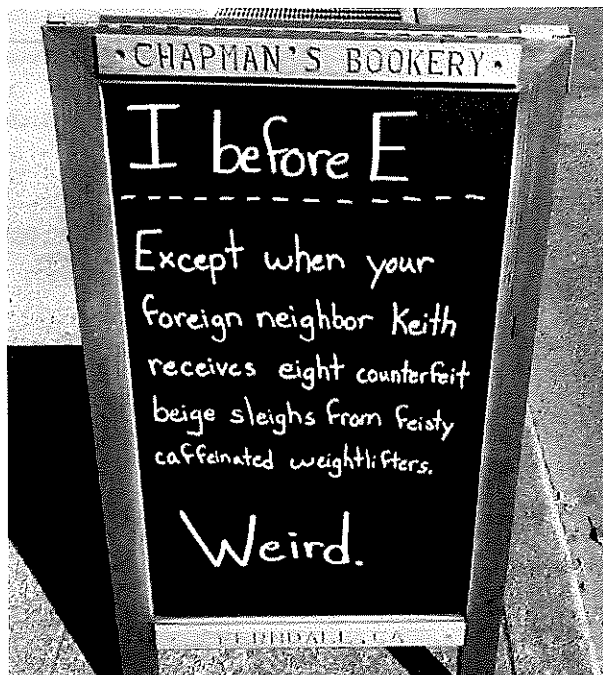 ·CHAPMAN'S BOOKERY·
I before E
Except when your
foreign neighbor Keith
receives eight counterfeit
beige sleighs from feisty
caffeinated weightlifters.
Weird.